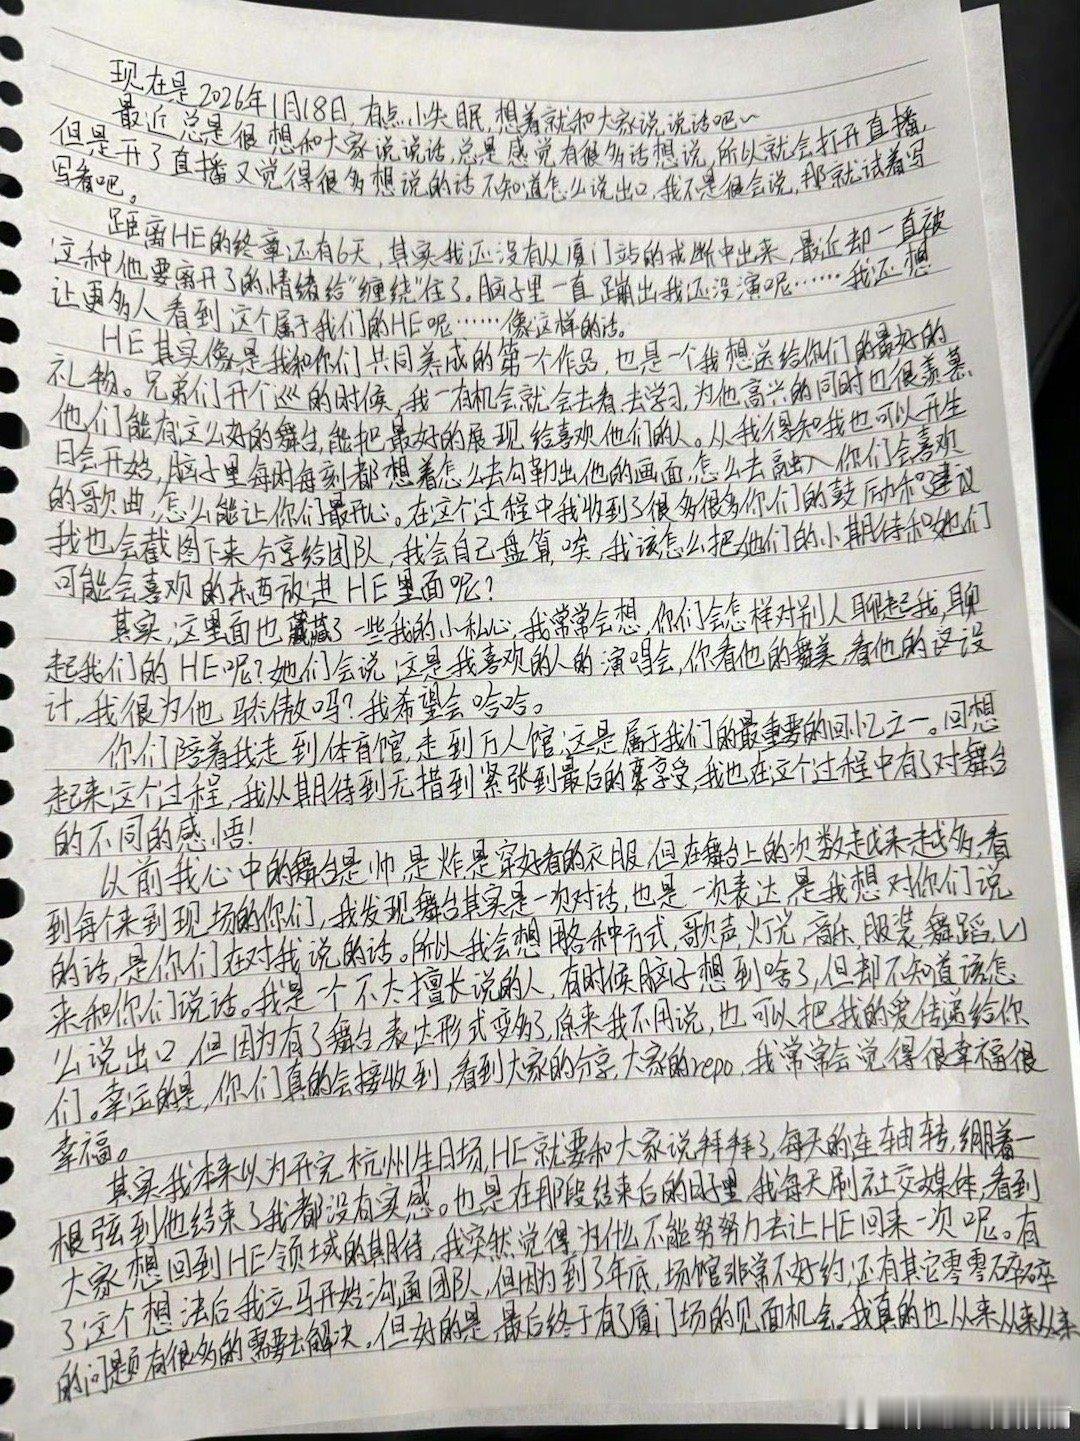 现在是2026年1月18日,有点小失眠,想着就和大家说说话吧~
最近总是很想和大家说说话,总是感觉有很多话想说,所以就会打开直播,
但是开了直播又觉得很多想说的话不知道怎么说出口,我不是很会说,那就试着写
写看吧。
距离HE的终章还有6天,其实我还没有从厦门站的戒断中出来,最近却一直被
这种他要离开了的情绪给“缠绕”住了。脑子里一直蹦出我还没演呢……我还想
让更多人看到这个属于我们的HE呢……像这样的话。
HE其实像是我和你们共同养成的第一个作品,也是一个我想送给你们的最好的
礼物。兄弟们开个巡的时候,我一有机会就会去看,去学习,为他高兴的同时也很羡慕,
他们能有这么好的舞台,能把最好的展现给喜欢他们的人。从我得知我也可以开生
日会开始,脑子里每时每刻都想着怎么去勾勒出他的画面,怎么去融入你们会喜欢
的歌曲,怎么能让你们最开心。在这个过程中我收到了很多很多你们的鼓励和建议
我也会截图下来分享给团队,我会自己盘算,唉,我该怎么把他们的小期待和她们
可能会喜欢的东西放进HE里面呢?
其实,这里面也藏了一些我的小私心,我常常会想,你们会怎样对别人聊起我,聊
起我们的HE呢?她们会说这是我喜欢的人的演唱会,你看他的舞美,看他的这设
计,我很为他骄傲吗?我希望会哈哈。
你们陪着我走到体育馆,走到万人馆,这是属于我们的最重要的回忆之一。回想
起来这个过程,我从期待到无措到紧张到最后的享受,我也在这个过程中有了对舞台
的不同的感悟!
以前我心中的舞台是帅是炸是穿好看的衣服,但在舞台上的次数越来越多,看
到每个来到现场的你们,我发现舞台其实是一次对话,也是一次表达,是我想对你们说
的话,是你们在对我说的话。所以我会想用各种方式,歌声,灯光,音乐,服装,舞蹈,
来和你们说话。我是一个不太擅长说的人,有时候脑子想到啥了,但却不知道该怎
么说出口,但因为有了舞台,表达形式变多了,原来我不用说,也可以把我的爱传递给你
们。幸运的是,你们真的会接收到,看到大家的分享,大家的repo,我常常会觉得很幸福很
幸福。
其实我本来以为开完杭州生日场,HE就要和大家说拜拜了,每天的连轴转,绷着一
根弦到他结束了我都没有实感。也是在那段结束后的日子里,我每天刷社交媒体,看到
大家想回到HE领域的期待,我突然觉得为什么不能努努力去让HE回来一次呢。有
了这个想法后我立马开始沟通团队,但因为到了年底,场馆非常不好约,还有其它零零碎碎
的问题有很多的需要去解决,但好的是,最后终于有了厦门场的见面机会。我真的也从来从来从来